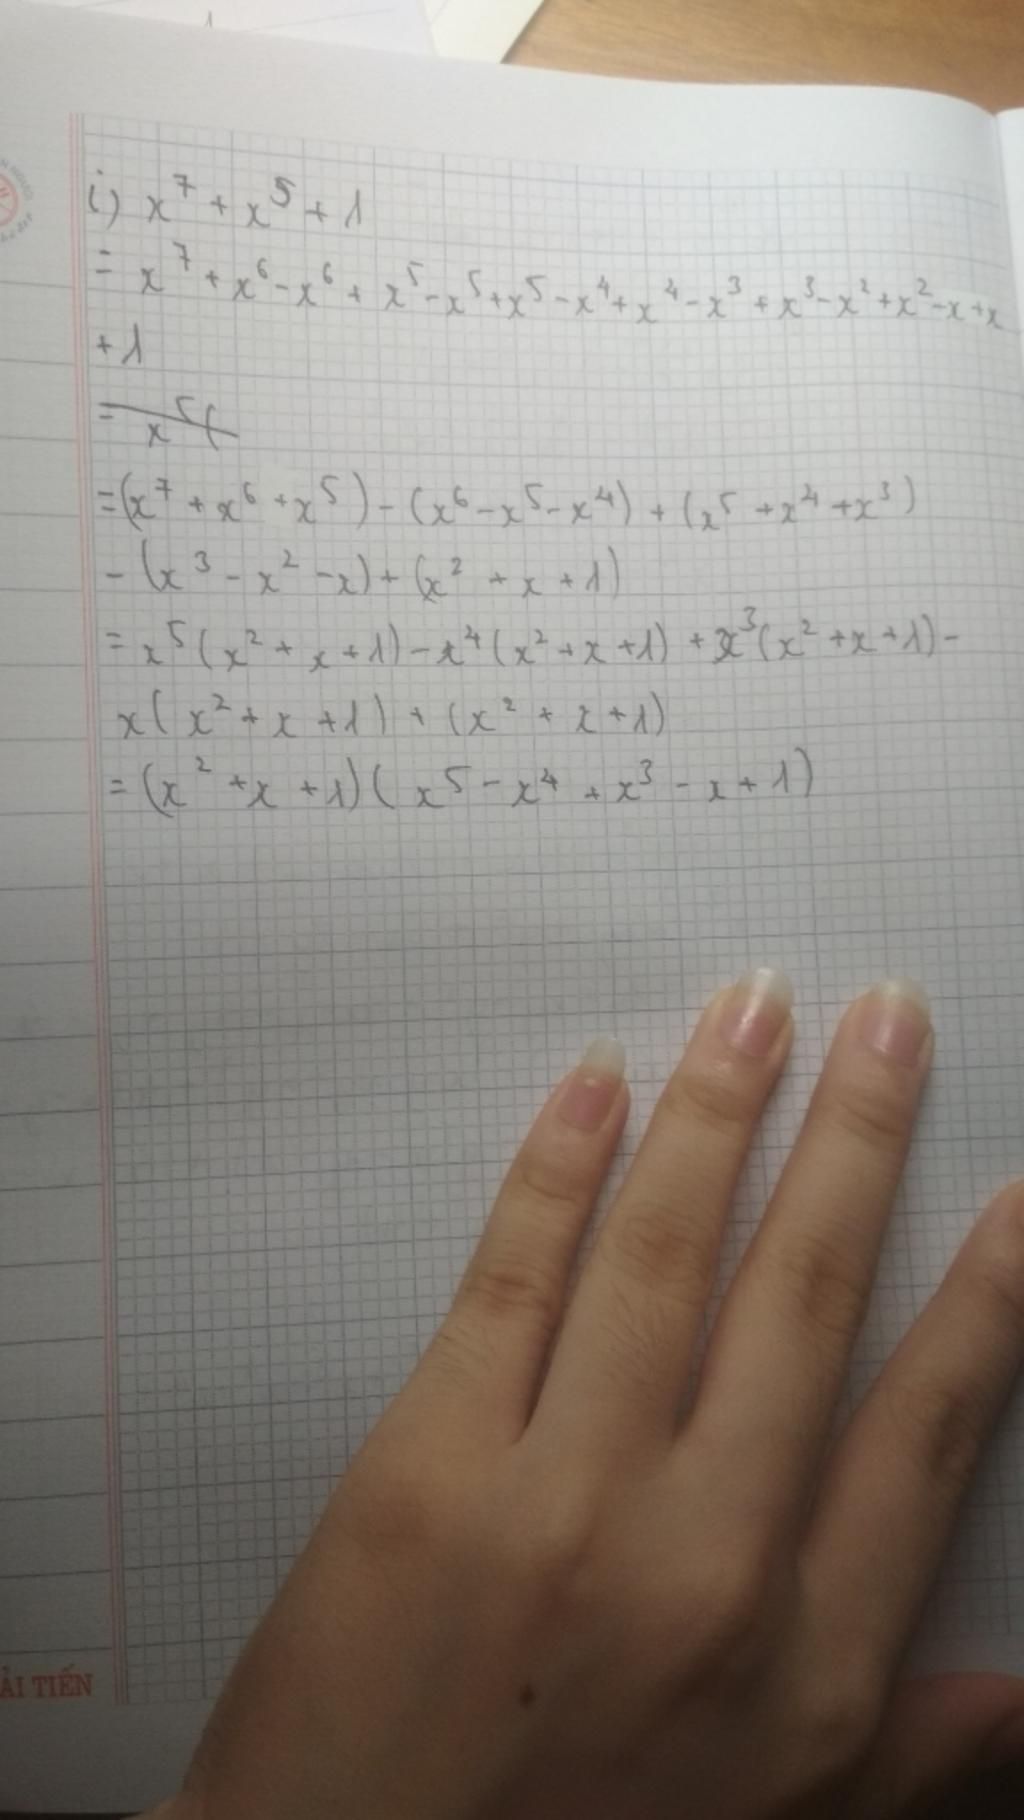 i) x⁷ + x⁵ + 1
= x⁷ + x⁶ - x⁶ + x⁵ - x⁵ + x⁵ - x⁴ + x⁴ - x³ + x³ - x² + x² - x + x
+ 1
= x⁵(
= (x⁷ + x⁶ + x⁵) - (x⁶ - x⁵ - x⁴) + (x⁵ + x⁴ + x³)
- (x³ - x² - x) + (x² + x + 1)
= x⁵(x² + x + 1) - x⁴(x² + x + 1) + x³(x² + x + 1) -
x(x² + x + 1) + (x² + x + 1)
= (x² + x + 1)(x⁵ - x⁴ + x³ - x + 1)
ẢI TIẾN